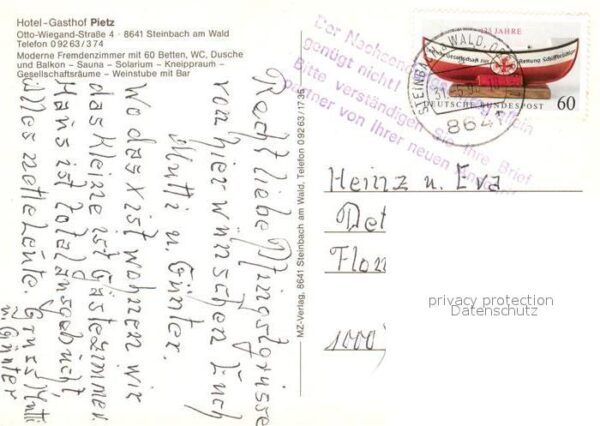 Hotel-Gasthof Pietz
Otto-Wiegand-Straße 4 · 8641 Steinbach am Wald
Telefon 09263/374
Moderne Fremdenzimmer mit 60 Betten, WC, Dusche
und Balkon – Sauna – Solarium – Kneippraum –
Gesellschaftsräume – Weinstube mit Bar
Recht liebe Pfingstgrüsse
von hier wünschen Euch
Mutti u. Günter.
Wo das X ist wohnen wir
das Kleine ist Gästezimmer.
Haus ist total ausgebucht,
alles nette Leute Gruss Mutti
u. Günter
MZ-Verlag, 8641 Steinbach am Wald, Telefon 09263/1735
Der Nachsen
genügt nicht!
Bitte verständigen Sie Ihre Brief
partner von Ihrer neuen
125 JAHRE
Gesellschaft zur Rettung Schiffbrüchiger
DEUTSCHE BUNDESPOST
60
STEINBACH A. WALD, OBERFR
8641
Heinz u. Eva
Det
Flor
1000
privacy protection
Datenschutz